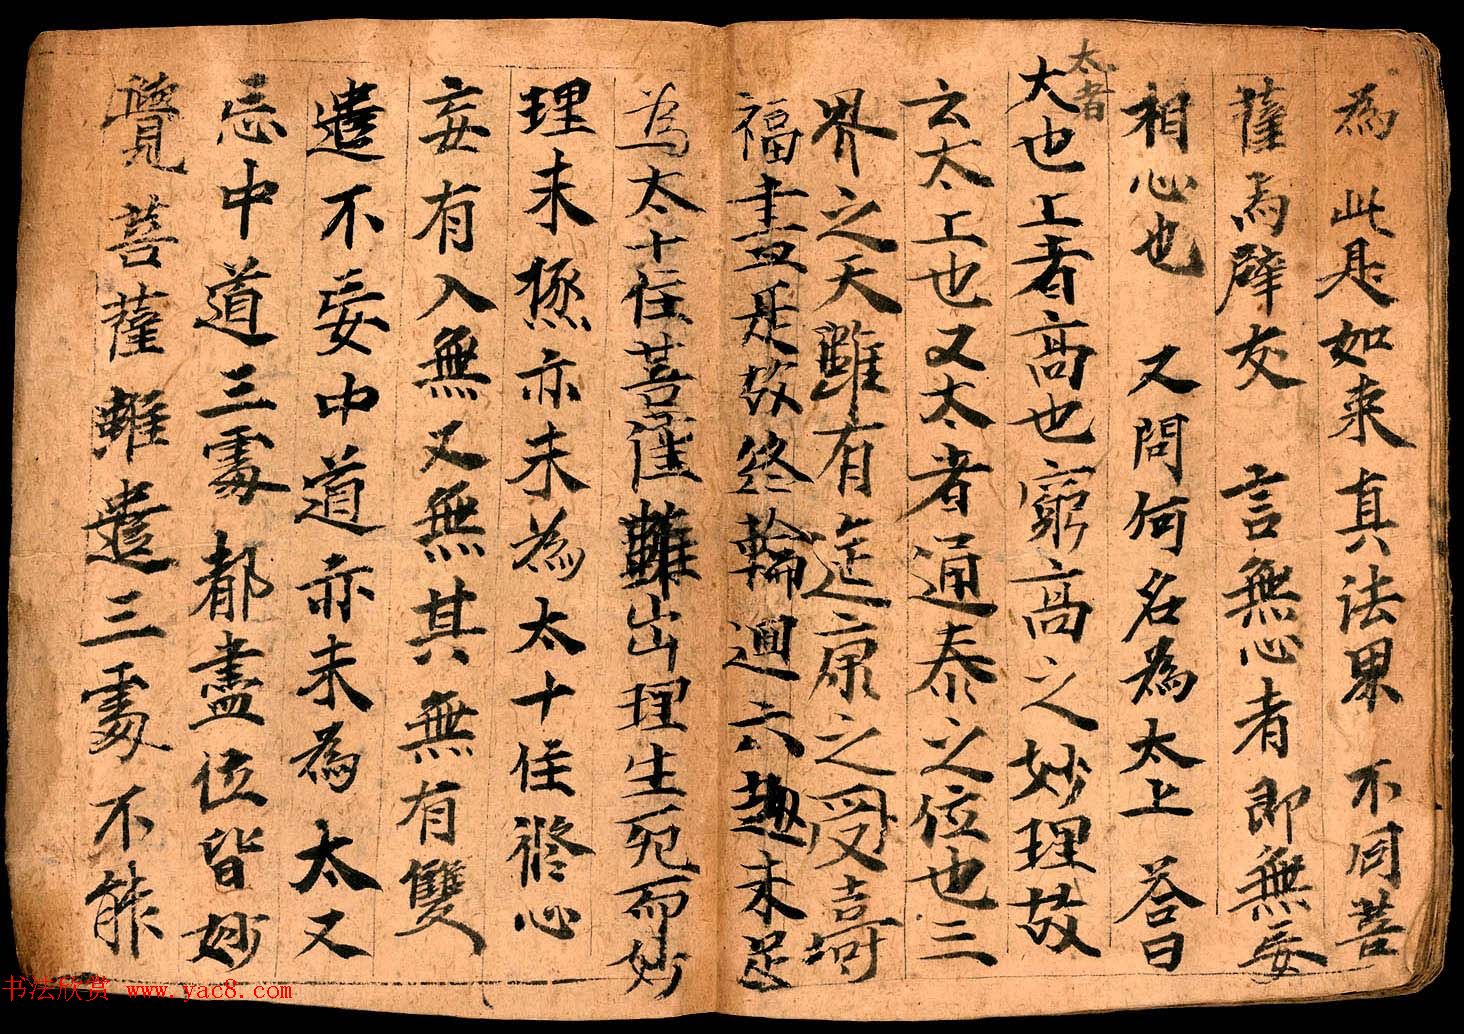 為此是如来真法界不同菩
薩為薜文言無心者即無妄
相心也又問何名為太上荅曰
太者
大也上者高也窮高之妙理故
云太上也又太者通泰之位也三
界之天雖有延康之受
福盡是故終輪迴六趣未足
為太十住菩薩雖出理生死而妙
理未極亦未為太十住滌心
妄有入無又無其無有雙
遣不妄中道亦未為太又
忘中道三處都盡位皆妙
覺菩薩雖遣三處不能
书法欣赏 www.yac8.com